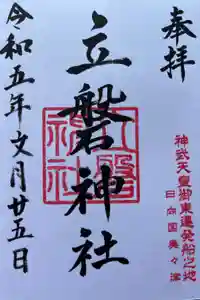 奉拝
神武天皇御東遷発船之地
日向国美々津
立磐神社
立磐
神社
令和五年文月廿五日